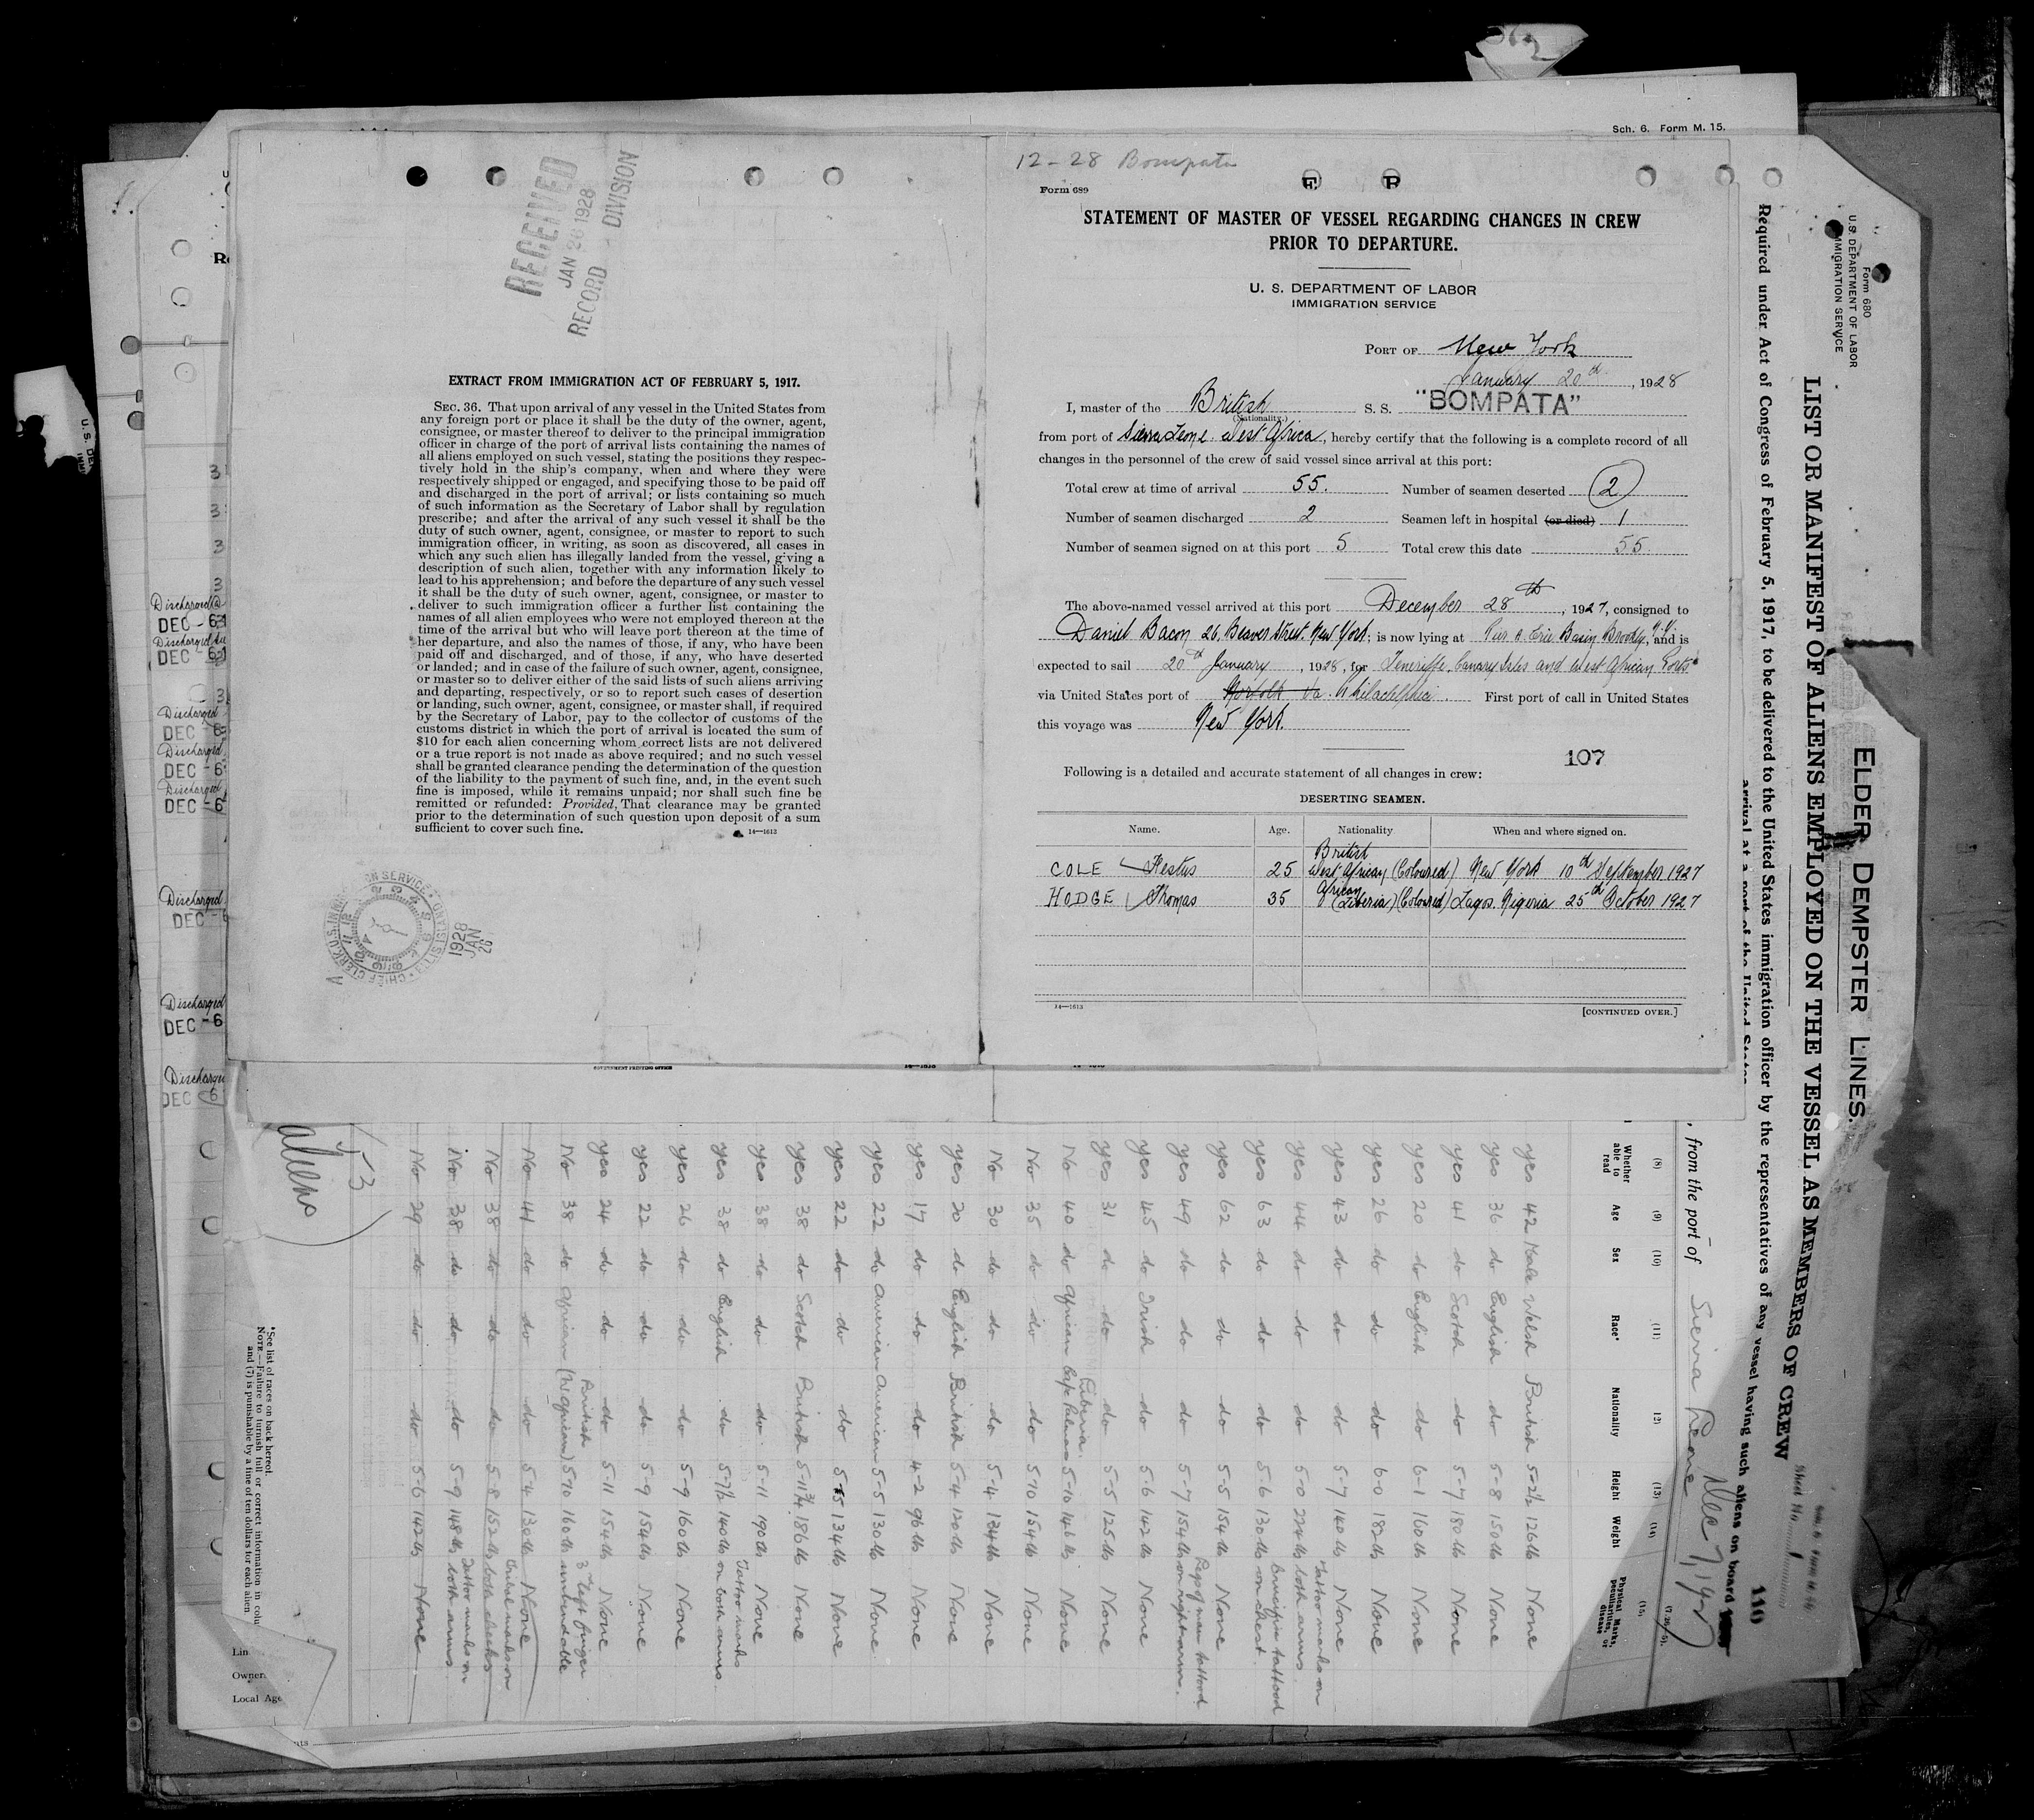 Sch. 6. Form M. 15.
RECEIVED
JAN 26 1928
RECORD DIVISION
EXTRACT FROM IMMIGRATION ACT OF FEBRUARY 5, 1917.
SEC. 36. That upon arrival of any vessel in the United States from
any foreign port or place it shall be the duty of the owner, agent,
consignee, or master thereof to deliver to the principal immigration
officer in charge of the port of arrival lists containing the names of
all aliens employed on such vessel, stating the positions they respec-
tively hold in the ship's company, when and where they were
respectively shipped or engaged, and specifying those to be paid off
and discharged in the port of arrival; or lists containing so much
of such information as the Secretary of Labor shall by regulation
prescribe; and after the arrival of any such vessel it shall be the
duty of such owner, agent, consignee, or master to report to such
immigration officer, in writing, as soon as discovered, all cases in
which any such alien has illegally landed from the vessel, giving a
description of such alien, together with any information likely to
lead to his apprehension; and before the departure of any such vessel
it shall be the duty of such owner, agent, consignee, or master to
deliver to such immigration officer a further list containing the
names of all alien employees who were not employed thereon at the
time of the arrival but who will leave port thereon at the time of
her departure, and also the names of those, if any, who have been
paid off and discharged, and of those, if any, who have deserted
or landed; and in case of the failure of such owner, agent, consignee,
or master so to deliver either of the said lists of such aliens arriving
and departing, respectively, or so to report such cases of desertion
or landing, such owner, agent, consignee, or master shall, if required
by the Secretary of Labor, pay to the collector of customs of the
customs district in which the port of arrival is located the sum of
$10 for each alien concerning whom correct lists are not delivered
or a true report is not made as above required; and no such vessel
shall be granted clearance pending the determination of the question
of the liability to the payment of such fine, and, in the event such
fine is imposed, while it remains unpaid; nor shall such fine be
remitted or refunded: Provided, That clearance may be granted
prior to the determination of such question upon deposit of a sum
sufficient to cover such fine.
14—1613
1928
JAN
26
12-28 Bompata
Form 689
STATEMENT OF MASTER OF VESSEL REGARDING CHANGES IN CREW
PRIOR TO DEPARTURE.
U. S. DEPARTMENT OF LABOR
IMMIGRATION SERVICE
PORT OF New York
January 20th, 1928
I, master of the British S. S. "BOMPATA"
(Nationality.)
from port of Sierra Leone. West Africa, hereby certify that the following is a complete record of all
changes in the personnel of the crew of said vessel since arrival at this port:
Total crew at time of arrival 55. Number of seamen deserted 2
Number of seamen discharged 2 Seamen left in hospital (or died) 1
Number of seamen signed on at this port 5 Total crew this date 55.
The above-named vessel arrived at this port December 28th, 1927, consigned to
Daniel Bacon 26, Beaver Street. New York; is now lying at Pier 2. Erie Basin, Brookly, N.Y. and is
expected to sail 20th January, 1928, for Teneriffe, Canary Isles and West African Ports
via United States port of Norfolk Va. Philadelphia. First port of call in United States
this voyage was New York.
107
Following is a detailed and accurate statement of all changes in crew:
DESERTING SEAMEN.
Name. Age. Nationality When and where signed on.
COLE Festus 25 British West African (Coloured) New York 10th September 1927
HODGE Thomas 35 African (Liberia) (Coloured) Lagos. Nigeria 25th October 1927
14—1613
[CONTINUED OVER.]
Form 680
U.S. DEPARTMENT OF LABOR
IMMIGRATION SERVICE
ELDER DEMPSTER LINES.
LIST OR MANIFEST OF ALIENS EMPLOYED ON THE VESSEL AS MEMBERS OF CREW
Required under Act of Congress of February 5, 1917, to be delivered to the United States immigration officer by the representatives of any vessel having such aliens on board
arrival at a port of the United States
110
, from the port of Sierra Leone Dec 7, 1927
(8) (9) (10) (11) 12) (13) (14) (15)
Whether able to read Age Sex Race* Nationality Height Weight Physical Marks, peculiarities, or disease
yes 42 Male Welsh British 5-2½ 126 lb None
yes 36 do English do 5-8 150 lb None
yes 41 do Scotch do 5-7 180 lb None
yes 20 do English do 6-1 160 lb None
yes 26 do do do 6-0 182 lb None
yes 43 do do do 5-7 140 lb None
yes 44 do do do 5-0 224 lb Tattoo marks on both arms
yes 63 do do do 5-6 130 lb Crucifix tattooed on chest.
yes 62 do do do 5-5 154 lb None
yes 49 do do do 5-7 154 lb on right arm.
yes 45 do Irish do 5-6 142 lb None
yes 31 do do do 5-5 125 lb None
No 40 do African Liberia Cape Palmas 5-10 146 lb None
No 35 do do do 5-10 154 lb None
No 30 do do do 5-4 134 lb None
yes 20 do English British 5-4 120 lb None
yes 17 do do do 4-2 96 lb None
yes 22 do American American 5-5 130 lb None
yes 22 do do do 5-5 134 lb None
yes 38 do Scotch British 5-11¾ 186 lb None
yes 38 do do do 5-11 190 lb None
yes 38 do English do 5-7½ 140 lb Tattoo marks on both arms
yes 26 do do do 5-9 160 lb None
yes 22 do do do 5-9 154 lb None
yes 24 do do do 5-11 154 lb None
No 38 do African British (W African) 5-10 160 lb 3rd left finger unbendable
No 41 do do do 5-4 130 lb None
No 38 do do do 5-8 152 lb Tribal marks on both cheeks
No 38 do do do 5-9 148 lb Tattoo marks on both arms
No 29 do do do 5-6 142 lb None
53
*See list of races on back hereof.
NOTE.—Failure to furnish full or correct information in colu
and (7) is punishable by a fine of ten dollars for each alien
Lin
Owner
Local Age
Discharged
DEC -6
Discharged
DEC -6
Discharged
DEC -6
Discharged
DEC -6
Discharged
DEC -6
Discharged
DEC -6
Discharged
DEC -6
Discharged
DEC 6